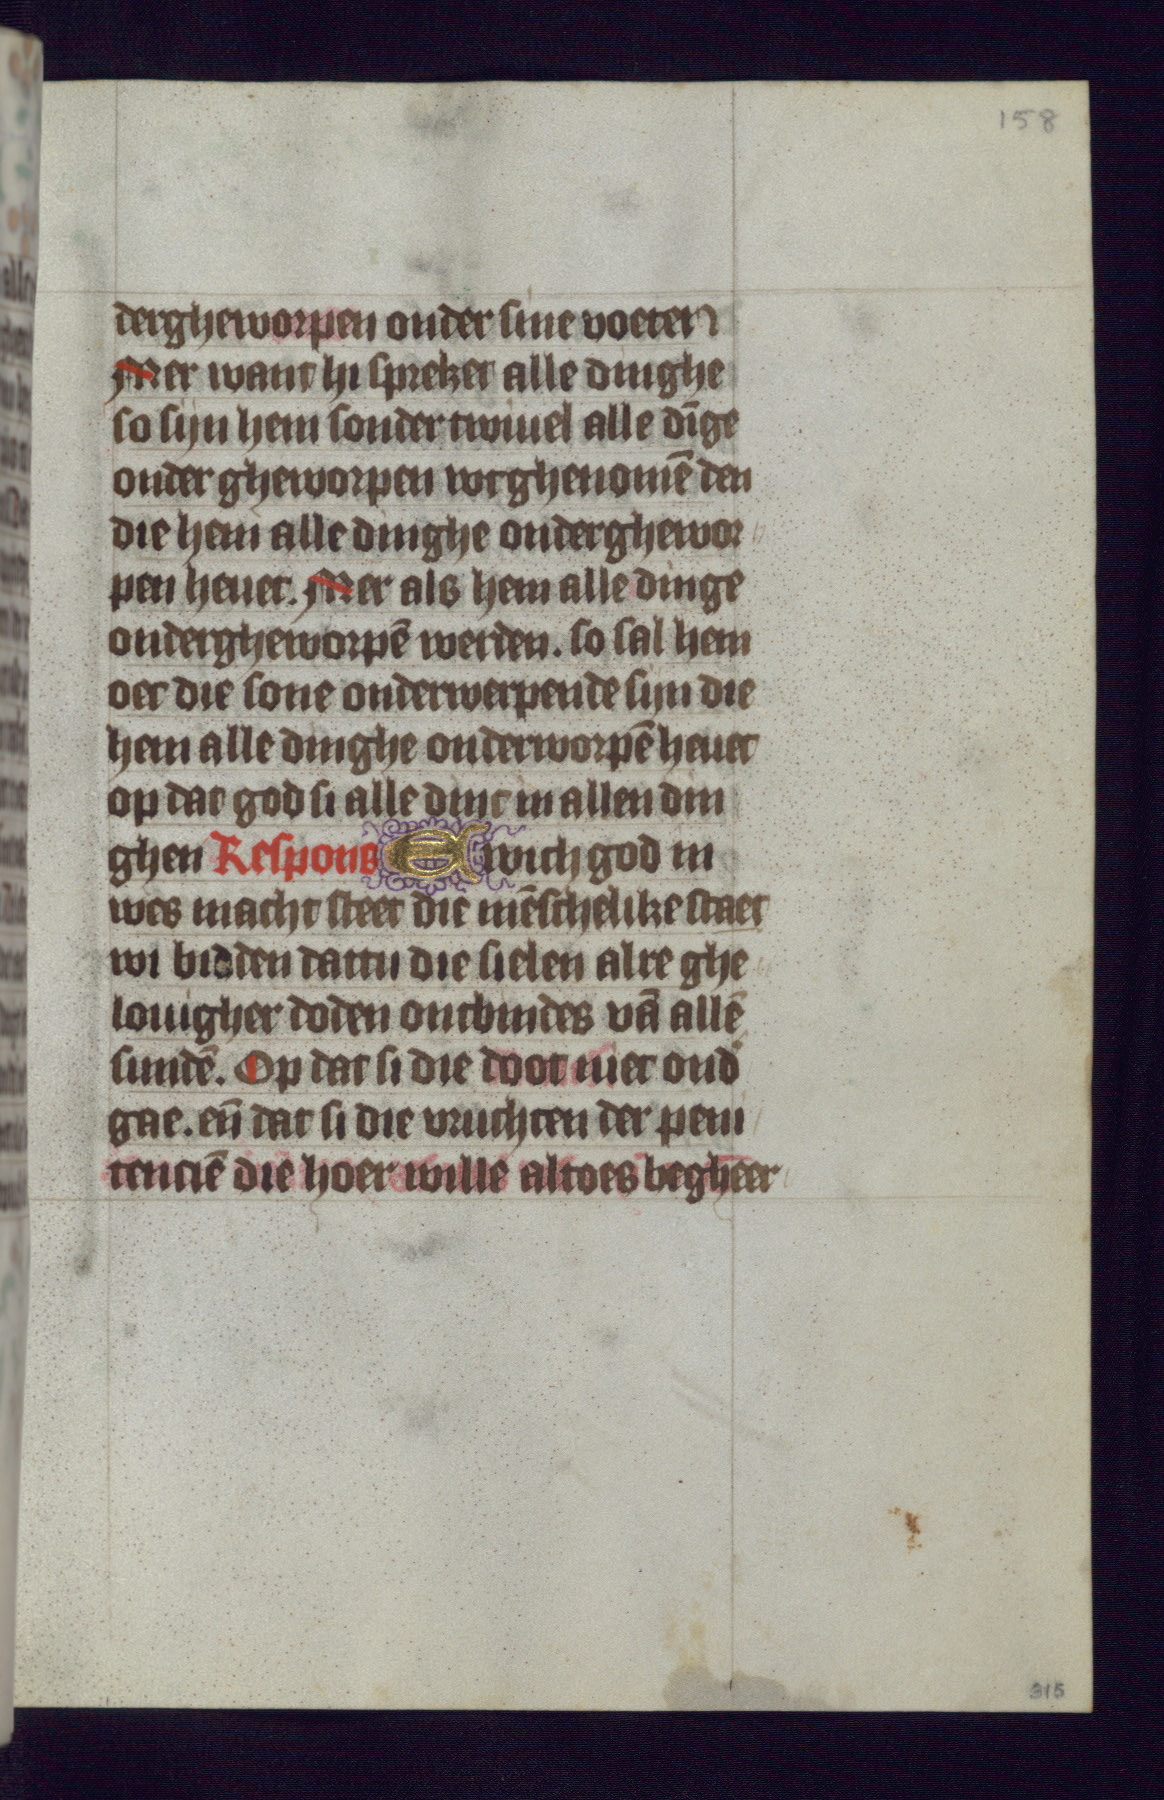 158
dergheworpen onder sine voeten
Mer want hi spreket alle dinghe
so sijn hem sonder twiuel alle dīge
onder gheworpen wtghenomē den
die hem alle dinghe onderghewor
pen heuet. Mer als hem alle dinge
ondergheworpē werden. so sal hem
oec die sone onderwerpende sijn die
hem alle dinghe onderworpē heuet
op dat god si alle dinc in allen din
ghen Respons Ewich god in
wes macht steet die mēschelike staet
wi bidden dattu die sielen alre ghe
louigher doden ontbindes vā allē
sundē. Op dat si die doot niet ond
gae. eñ dat si die vruchten der peni
tenciē die hoer wille altoes begheer
315